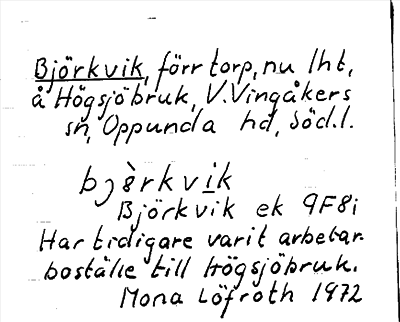 Björkvik, förr torp, nu lht,
å Högsjöbruk, V. Vingåkers
sn, Oppunda hd, Söd.l.
bjö̀rkvik
Björkvik ek 9F8i
Har tidigare varit arbetar-
boställe till Högsjöbruk.
Mona Löfroth 1972